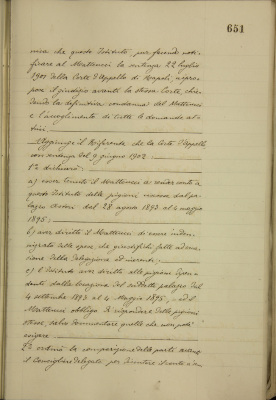 651
nica che questo Istituto, pur facendo noti-
ficare al Matteucci la sentenza 22 luglio
1901 della Corte d'Appello di Napoli, ripro-
pose il giudizio avanti la stessa Corte, chie-
dendo la definitiva condanna del Matteucci
e l'accoglimento di tutte le domande at-
trici.
Aggiunge il Riferente che la Corte d'Appello
con sentenza del 9 giugno 1902:
1° dichiarò:
a) esser tenuto il Matteucci a render conto a
questo Istituto delle pigioni riscosse dal pa-
lazzo dal 28 agosto 1893 al 4 maggio
1895;
b) aver diritto il Matteucci di essere inden-
nizzato delle spese, che giustificherà fatte
della delegazione ad incanti;
c) l'Istituto aver diritto alle pigioni dipen-
denti dalla locazione del suddetto palazzo dal
4 settembre 1893 al 4 Maggio 1895, ed il
Matteucci obbligo di rispondere delle pigioni
stesse, salvo dimostrare quelle che non poté
esigere.
2° ordinò la comparizione delle parti avanti
il Consigliere delegato, per discutere il conto